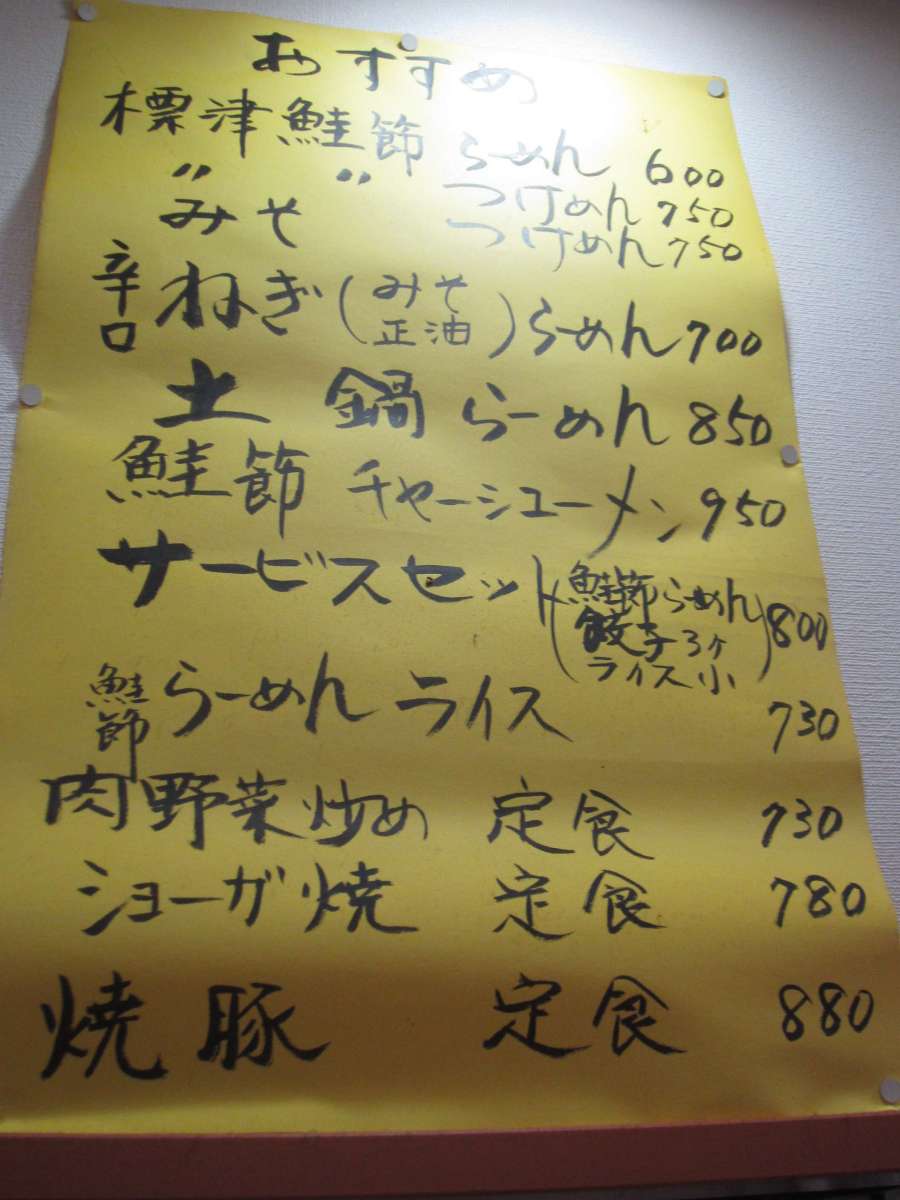 おすすめ
標津鮭節 らーめん 600
〃 〃 つけめん 750
みそ つけめん 750
辛口 ねぎ (みそ 正油) らーめん 700
土鍋 らーめん 850
鮭節 チャーシューメン 950
サービスセット (鮭節らーめん 餃子3ヶ ライス小) 800
鮭節 らーめん ライス 730
肉野菜炒め 定食 730
ショーガ焼 定食 780
焼豚 定食 880